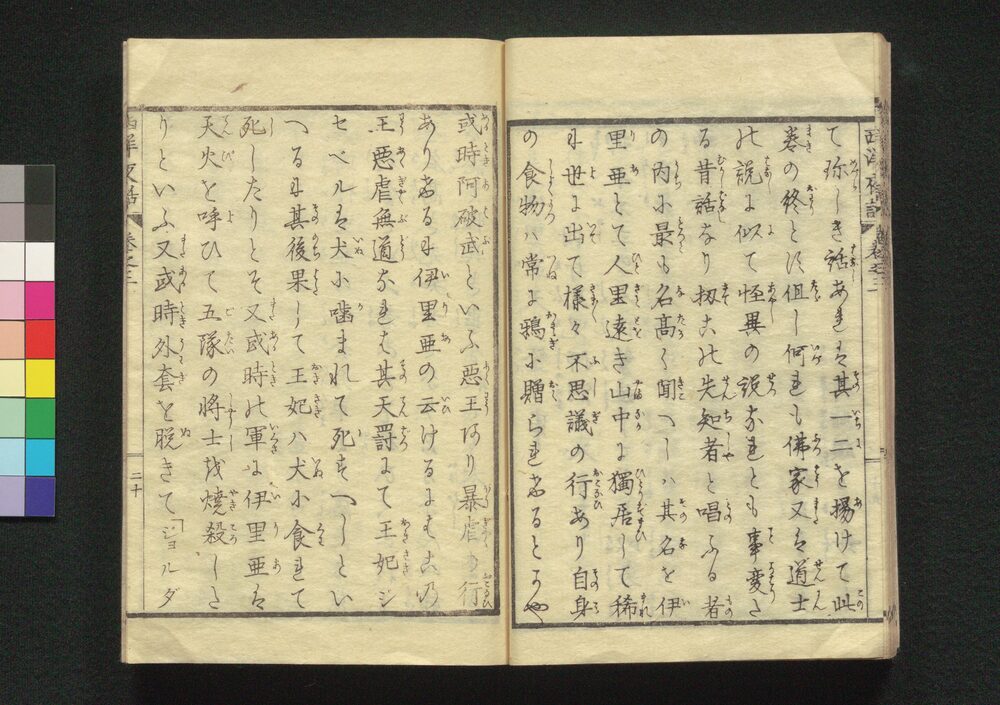 西洋夜話 卷之三
て珍しき話あれは其一二を揚けて此
巻の終とす但し何れも佛家又は道士
の説に似て怪異の説なれとも事変さ
る昔話なり扨古の先知者と唱ふる者
の内に最も名高く聞へしハ其名を伊
里亜とて人里遠き山中に獨居して稀
に世に出て様々不思議の行あり自身
の食物ハ常に鴉に贈られけるとかや
或時阿破武といふ悪王あり暴虐の行
ありけるに伊里亜の云けるにはこの
王悪虐無道なれは其天罰にて王妃ジ
セベルは犬に噛まれて死すへしとい
へるに其後果して王妃ハ犬に食れて
死したりとそ又或時の軍に伊里亜は
天火を呼ひて五隊の将士を焼殺しさ
りといふ又或時外套を脱きて「ジョルダ
西洋夜話 卷之三
二十